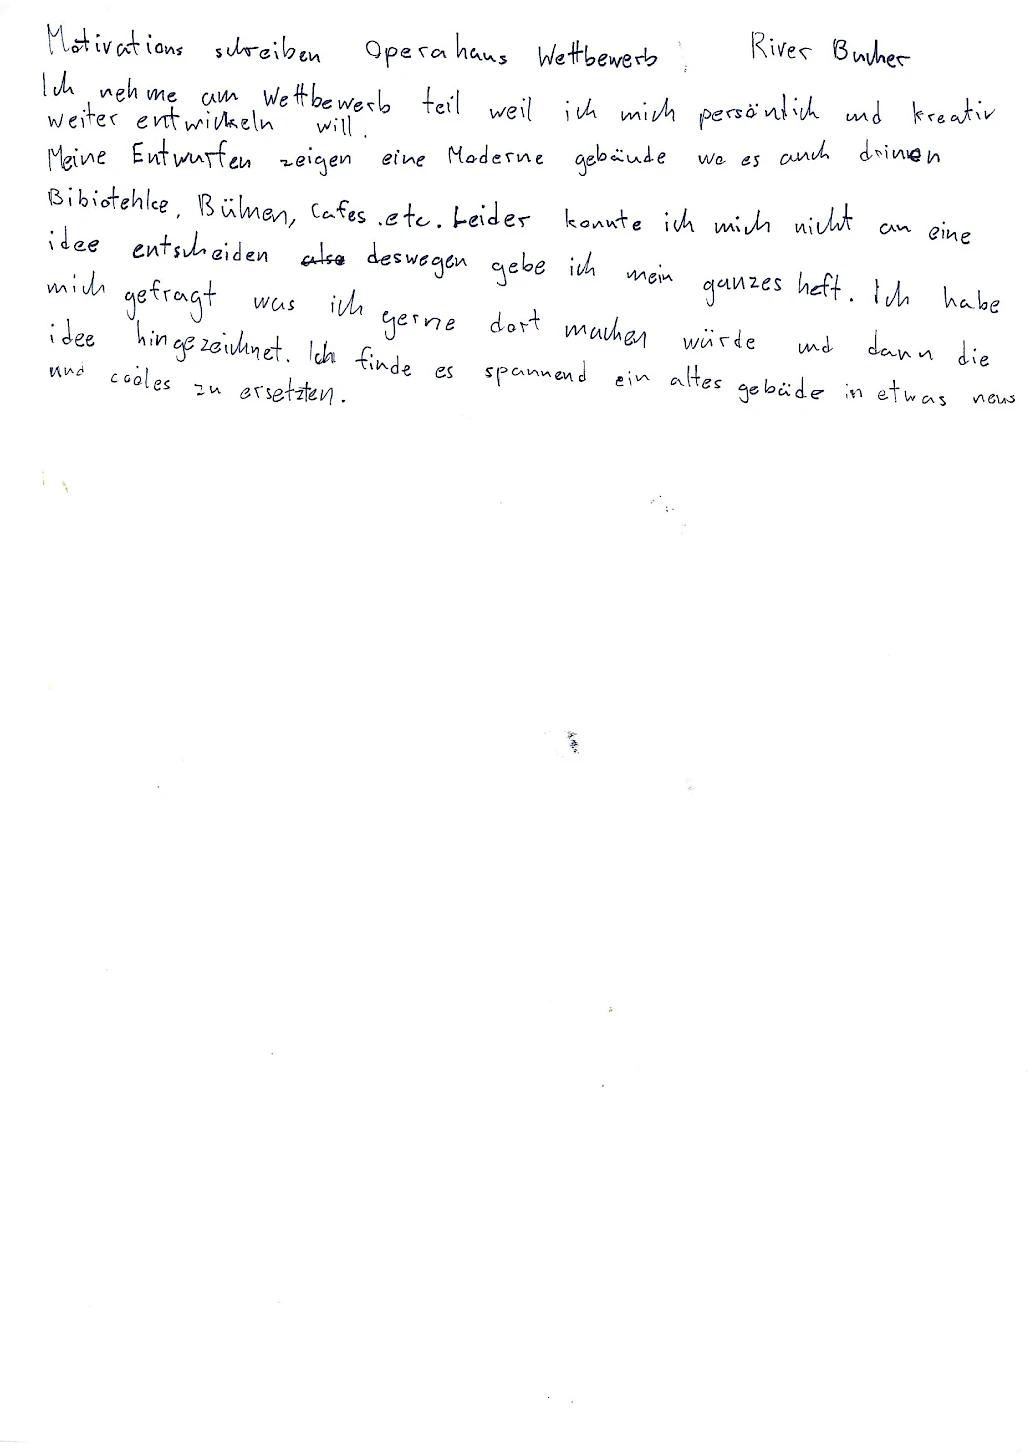 Motivations schreiben Operahaus Wettbewerb River Bucher
Ich nehme am Wettbewerb teil weil ich mich persönlich und kreativ
weiter entwickeln will.
Meine Entwurfen zeigen eine Moderne gebäude wo es auch drinen
Bibiotehke, Bühnen, Cafes .etc. Leider konnte ich mich nicht an eine
idee entscheiden also deswegen gebe ich mein ganzes heft. Ich habe
mich gefragt was ich gerne dort machen würde und dann die
idee hingezeichnet. Ich finde es spannend ein altes gebäude in etwas neus
und cooles zu ersetzten.